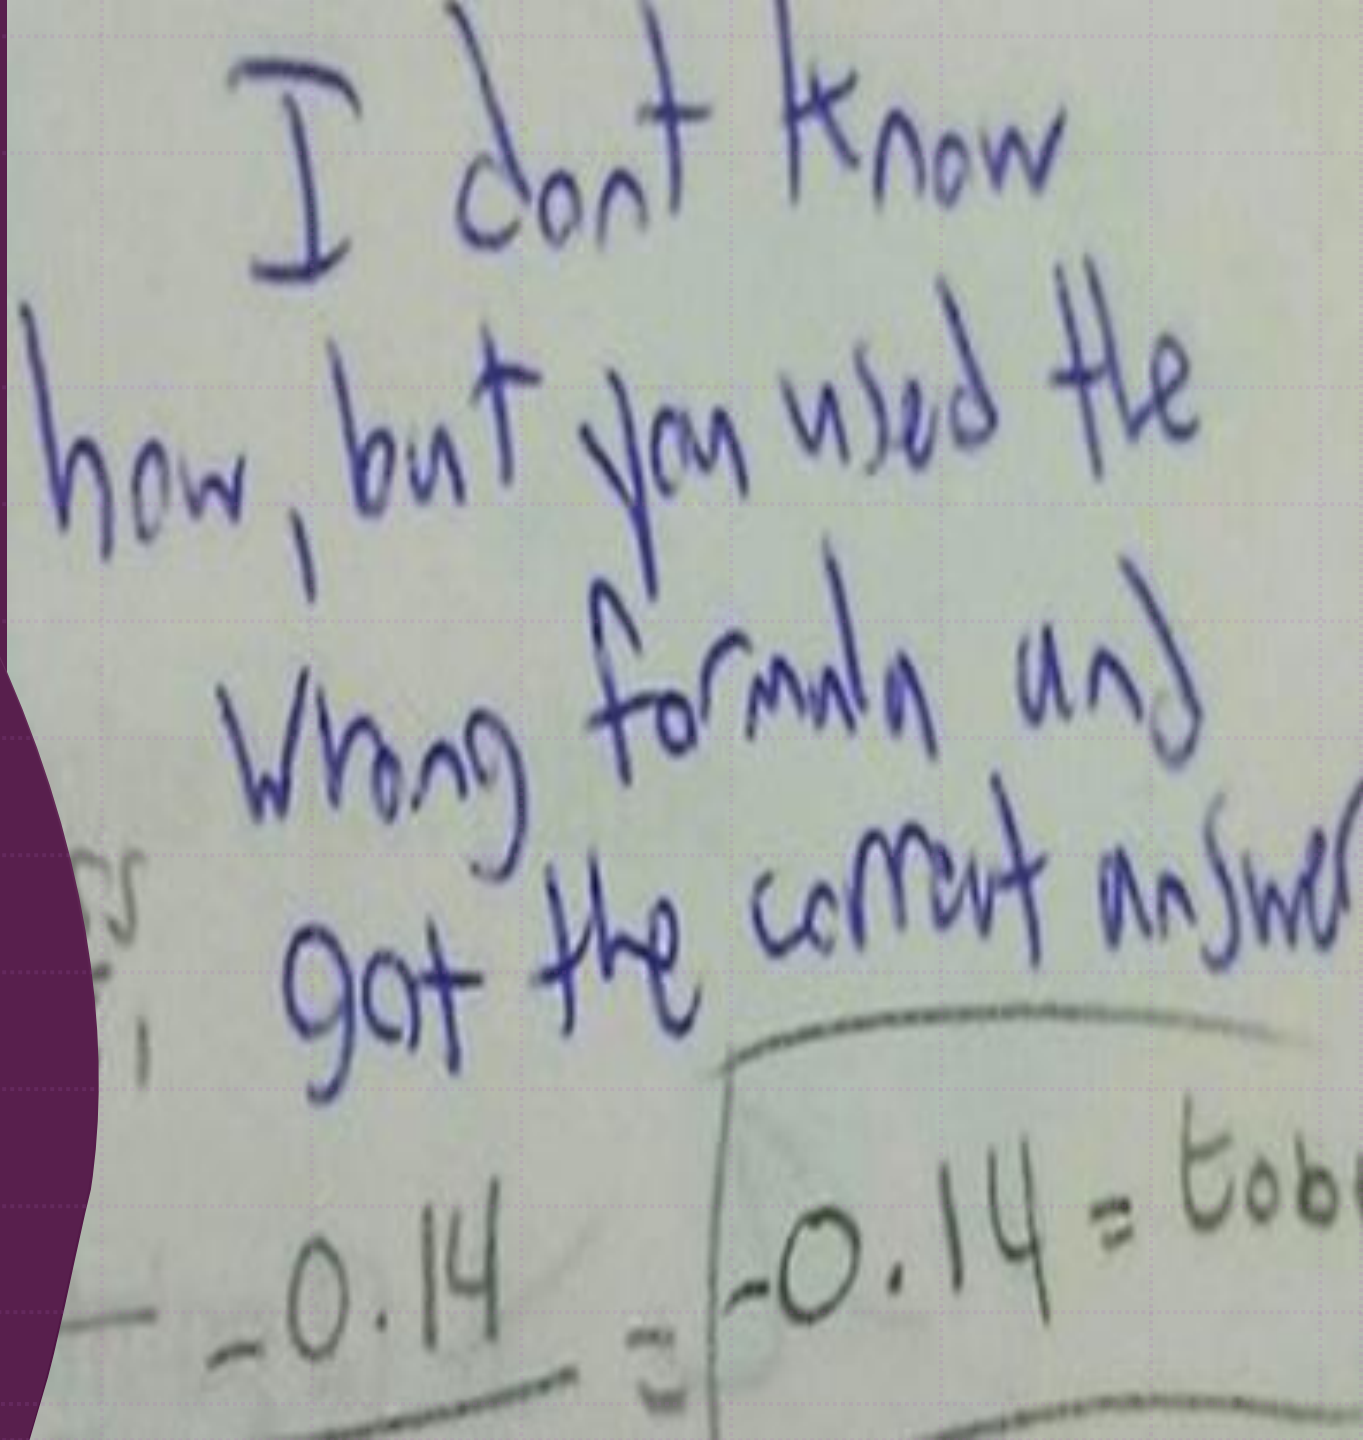 I dont know
how, but you used the
wrong formula and
got the correct answer
-0.14 = -0.14 = tob